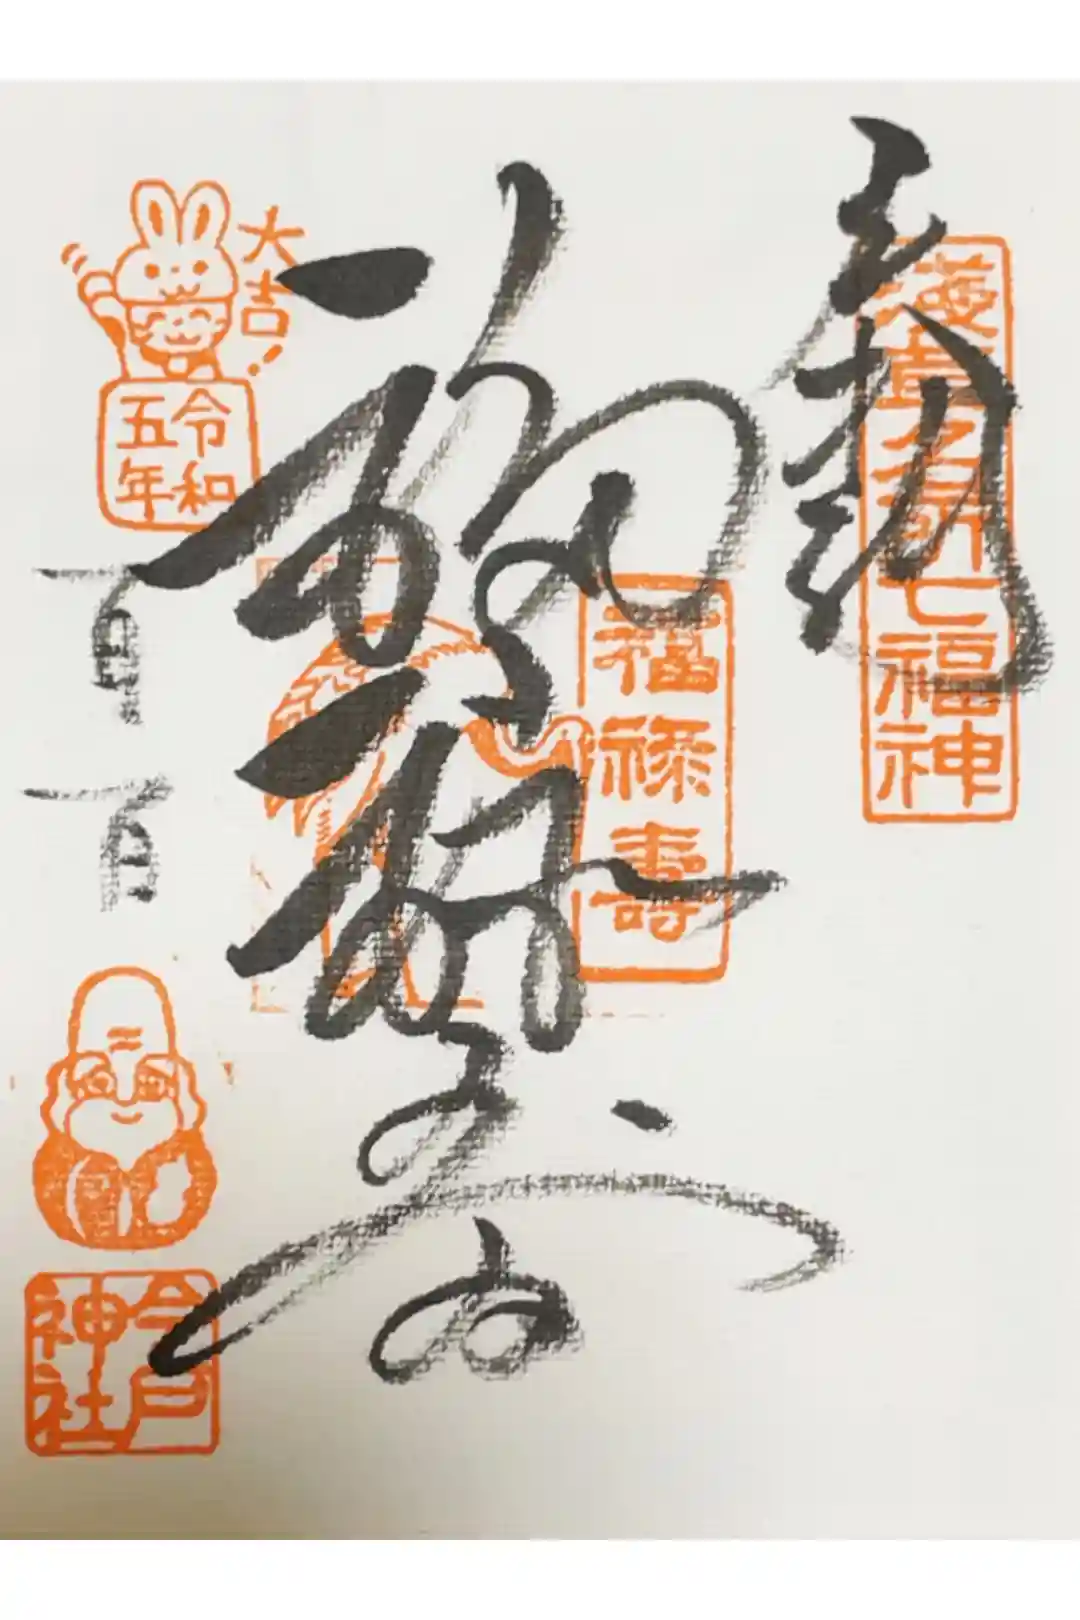 奉拝
浅草名所七福神
福禄寿
福禄壽
大吉!
令和
五年
一月
一日
今戸
神社